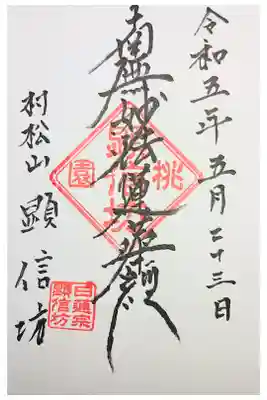 令和五年五月二十三日
南無妙法蓮華経
桃園
顕信坊
村松山 顕信坊
日蓮宗
顕信坊